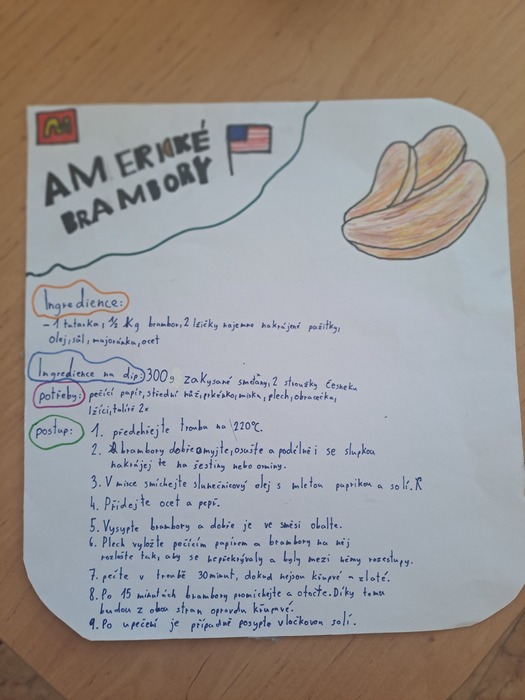 AMERICKÉ
BRAMBORY
Ingredience:
- 1 tatarka, 1/2 kg brambor, 2 lžičky najemno nakrájené pažitky,
olej, sůl, majoránka, ocet
Ingredience na dip: 300g zakysané smetany, 2 stroužky česneku
potřeby: pečící papír, střední nůž, prkénko, miska, plech, obracečka,
lžíci, talíř 2x
postup: 1. předehřejte troubu na 220°C.
2. brambory dobře omyjte, osušte a podélně i se slupkou
nakrájejte na šestiny nebo osminy.
3. V misce smíchejte slunečnicový olej s mletou paprikou a solí.
4. Přidejte ocet a pepř.
5. Vysypte brambory a dobře je ve směsi obalte.
6. Plech vyložte pečícím papírem a brambory na něj
rozložte tak, aby se nepřekrývaly a byly mezi němu rozestupy.
7. pečte v troubě 30minut, dokud nejsou křupavé a zlaté.
8. Po 15 minutách brambory promíchejte a otočte. Díky tomu
budou z obou stran opravdu křupavé.
9. Po upečení je případně posypte vločkovou solí.